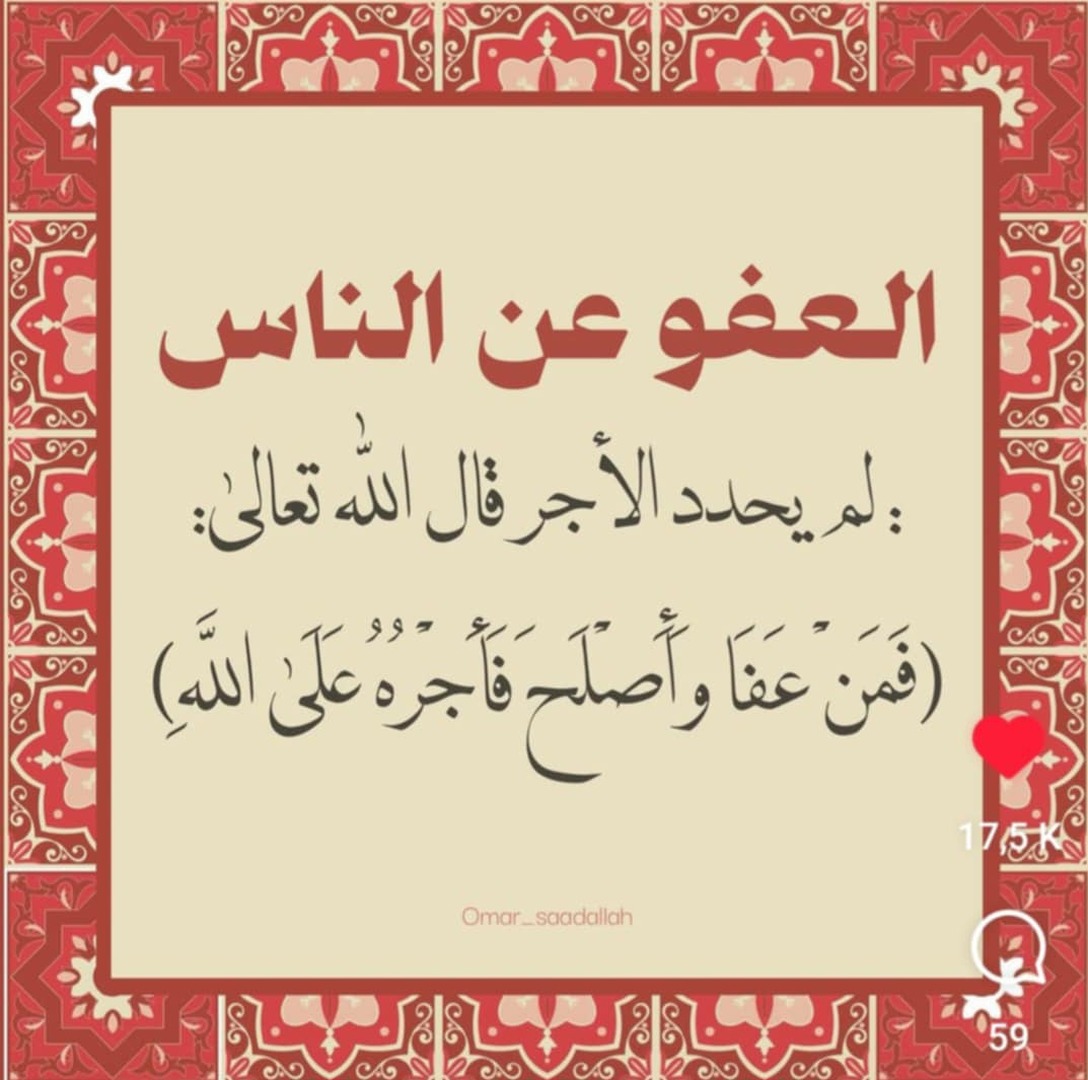 العفو عن الناس
: لم يحدد الأجر قال الله تعالىٰ:
(فَمَنْ عَفَا وَأَصْلَحَ فَأَجْرُهُ عَلَىٰ اللَّهِ)
17,5 K
Omar_saadallah
59